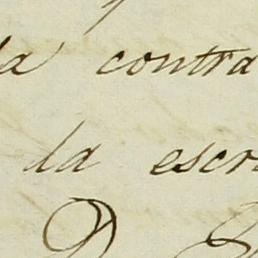 la contra
la escr